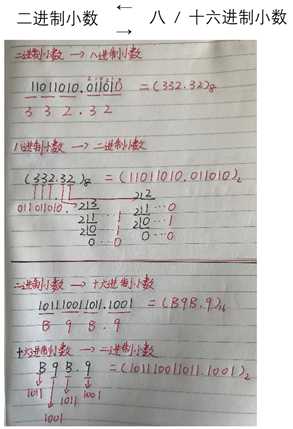 二进制小数 ← → 八 / 十六进制小数
二进制小数 → 八进制小数
11011010.011010 = (332.32)8
3 3 2 . 3 2
八进制小数 → 二进制小数
(332.32)8 = (11011010.011010)2
011011010. 2|3 2|2
2|1 ... 1 2|1 ... 0
2|0 ... 1 2|0 ... 1
0 ... 0 0 ... 0
二进制小数 → 十六进制小数
101110011011.1001 = (B9B.9)16
B 9 B . 9
十六进制小数 → 二进制小数
B 9 B . 9 = (101110011011.1001)2
1011 1011 1001
1001